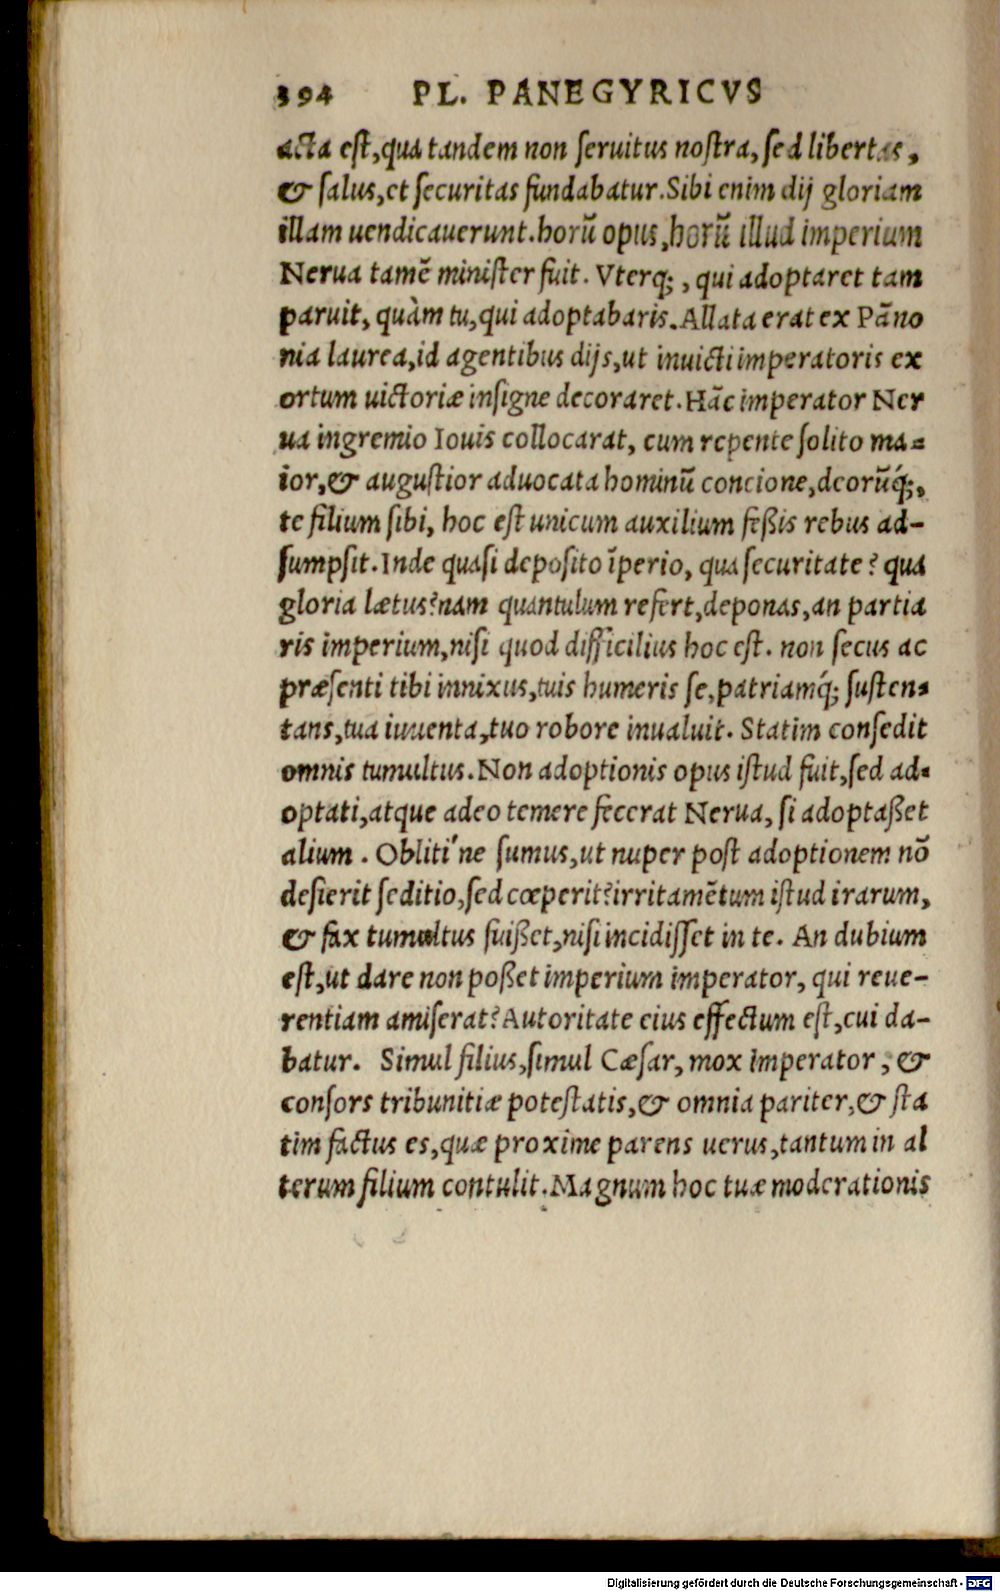 394 PL. PANEGYRICVS
acta est, qua tandem non seruitus nostra, sed libertas,
& salus, et securitas fundabatur. Sibi enim dij gloriam
illam uendicauerunt. horũ opus, horũ illud imperium
Nerua tamẽ minister fuit. Vterq;, qui adoptaret tam
paruit, quàm tu, qui adoptabaris. Allata erat ex Pãno
nia laurea, id agentibus dijs, ut inuicti imperatoris ex
ortum uictoriæ insigne decoraret. Hãc imperator Ner
ua in gremio Iouis collocarat, cum repente solito ma-
ior, & augustior aduocata hominũ concione, deorũq́;,
te filium sibi, hoc est unicum auxilium feßis rebus ad-
sumpsit. Inde quasi deposito ĩperio, qua securitate? qua
gloria lætus? nam quantulum refert, deponas, an partia
ris imperium, nisi quod difficilius hoc est. non secus ac
præsenti tibi innixus, tuis humeris se, patriamq́; susten-
tans, tua iuuenta, tuo robore inualuit. Statim consedit
omnis tumultus. Non adoptionis opus istud fuit, sed ad-
optati, atque adeo temere fecerat Nerua, si adoptaßet
alium. Obliti'ne sumus, ut nuper post adoptionem nõ
desierit seditio, sed cœperit? irritamẽtum istud irarum,
& fax tumultus fuißet, nisi incidisset in te. An dubium
est, ut dare non poßet imperium imperator, qui reue-
rentiam amiserat? Autoritate eius effectum est, cui da-
batur. Simul filius, simul Cæsar, mox Imperator, &
consors tribunitiæ potestatis, & omnia pariter, & sta
tim factus es, quæ proxime parens uerus, tantum in al
terum filium contulit. Magnum hoc tuæ moderationis
Digitalisierung gefördert durch die Deutsche Forschungsgemeinschaft - DFG